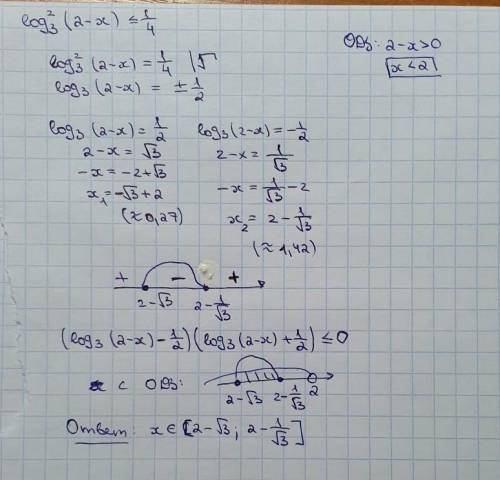 log₃² (2-x) ≤ 1/4
ОДЗ: 2-x>0
x<2
log₃² (2-x) = 1/4 |√
log₃ (2-x) = ± 1/2
log₃ (2-x) = 1/2
2-x = √3
-x = -2+√3
x₁ = -√3+2
(≈0,27)
log₃ (2-x) = -1/2
2-x = 1/√3
-x = 1/√3 - 2
x₂ = 2 - 1/√3
(≈ 1,42)
+ - +
2-√3 2-1/√3
(log₃ (2-x) - 1/2)(log₃ (2-x) + 1/2) ≤ 0
с ОДЗ:
2-√3 2-1/√3 2
Ответ: x ∈ [2-√3; 2-1/√3]